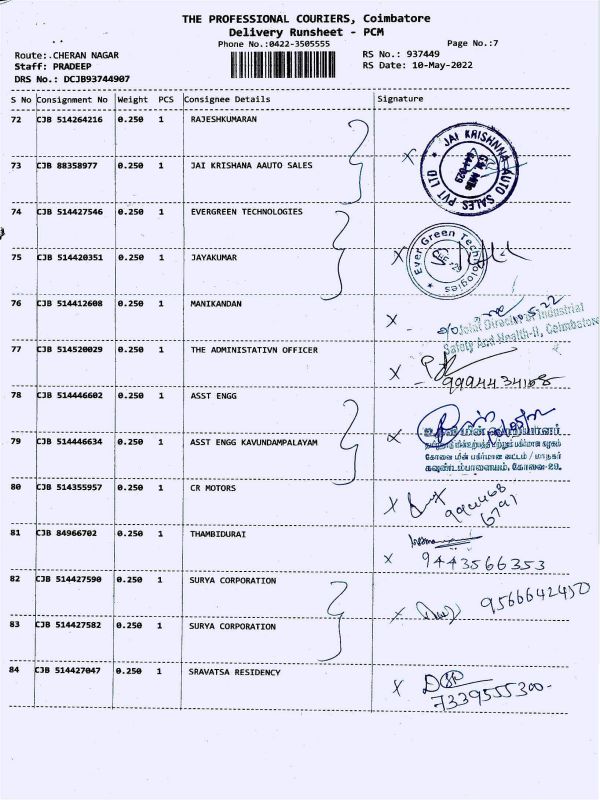 THE PROFESSIONAL COURIERS, Coimbatore
Delivery Runsheet - PCM
Phone No.:0422-3505555
Page No.:7
Route:.CHERAN NAGAR
RS No.: 937449
Staff: PRADEEP
RS Date: 10-May-2022
DRS No.: DCJB93744907
S No Consignment No Weight PCS Consignee Details Signature
72 CJB 514264216 0.250 1 RAJESHKUMARAN
73 CJB 88358977 0.250 1 JAI KRISHANA AAUTO SALES
JAI KRISHNNA AUTO SALES PVT LTD
74 CJB 514427546 0.250 1 EVERGREEN TECHNOLOGIES
75 CJB 514420351 0.250 1 JAYAKUMAR
Ever Green Technologies
76 CJB 514412608 0.250 1 MANIKANDAN
Joint Director of Industrial
Safety And Health-II, Coimbatore
77 CJB 514520029 0.250 1 THE ADMINISTATIVN OFFICER
9994434168
78 CJB 514446602 0.250 1 ASST ENGG
உதவி மின் பொறியாளர்
79 CJB 514446634 0.250 1 ASST ENGG KAVUNDAMPALAYAM
கோவை மின் பகிர்மான வட்டம் / மாநகர்
கவுண்டம்பாளையம், கோவை-29.
80 CJB 514355957 0.250 1 CR MOTORS
81 CJB 84966702 0.250 1 THAMBIDURAI
9443566353
82 CJB 514427590 0.250 1 SURYA CORPORATION
9566642450
83 CJB 514427582 0.250 1 SURYA CORPORATION
84 CJB 514427047 0.250 1 SRAVATSA RESIDENCY
7339555300-